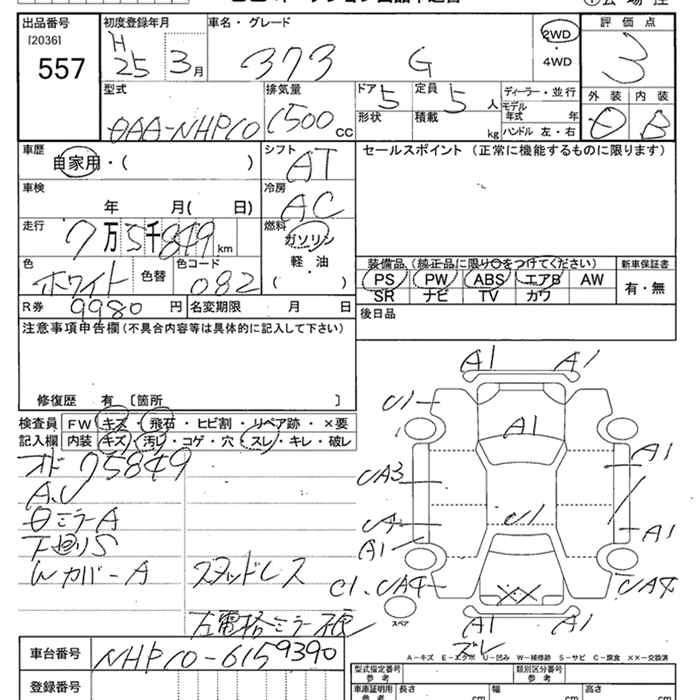 出品番号 初度登録年月 車名・グレード 評価点
[2036] H 2WD
557 25 3月 373 G ・ 3
4WD
型式 排気量 ドア 定員 ディーラー・並行 外装 内装
5 5人 モデル年式 年
DAA-NHP10 1500cc 形状 積載 kg ハンドル 左・右 B
車歴 シフト セールスポイント (正常に機能するものに限ります)
自家用・( ) AT
車検 冷房
年 月( 日) AC
走行 燃料
7万5千849km ガソリン
色 色替 色コード 軽・油 装備品 (純正品に限り○をつけてください) 新車保証書
ホワイト 082 ( ) PS PW ABS エアB AW 有・無
R券 9980円 名変期限 月 日 SR ナビ TV カワ
注意事項申告欄 (不具合内容等は具体的に記入して下さい) 後日品
修復歴 有 〔箇所 〕
検査員 FW キズ・飛石・ヒビ割・リペア跡・×要
記入欄 内装 キズ・汚レ・コゲ・穴・スレ・キレ・破レ
オド 75849
A.U
Θミラ-A
下廻りS
Wカバ-A スタッドレス
左電格ミラー不良
A1 A1
U1
A1
A1
UA3
UA
U1
A1
A1
C1、UA4
XX
UA4
スペア
A1 A1
ズレ
A-キズ E-エクボ U-凹み W-補修跡 S-サビ C-腐食 ××-交換済
車台番号 NHP10-6159390
登録番号
型式指定番号 参考 類別区分番号 参考
車庫証明用 参考 長さ cm 幅 cm 高さ cm